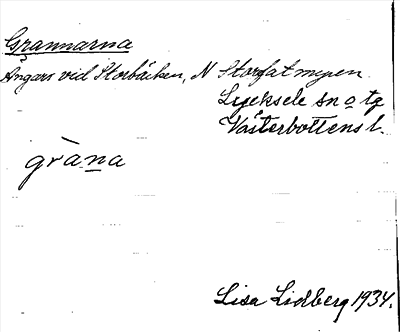 Grannarna
Ängar vid Storbäcken, N Storfatmyren
Lycksele sn o tg
Västerbottens l.
gràna
Lisa Lidberg 1934.